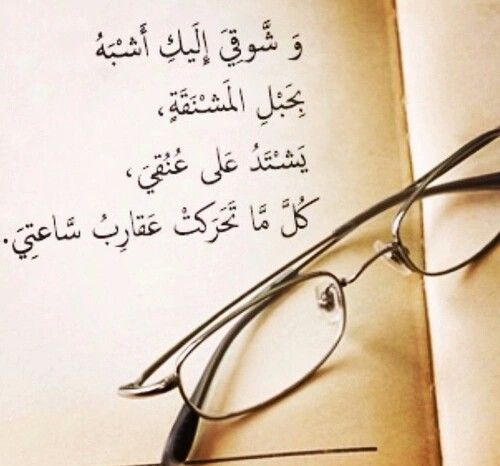 وَ شَّوقِيَ إِلَيكِ أَشْبَهُ
بِحَبْلِ المَشْنَقَةٍ،
يَشْتَدُ عَلى عُنُقِيَ،
كُلَّ مَّا تَحَرَكتْ عَقارِبُ سَّاعتِيَ.